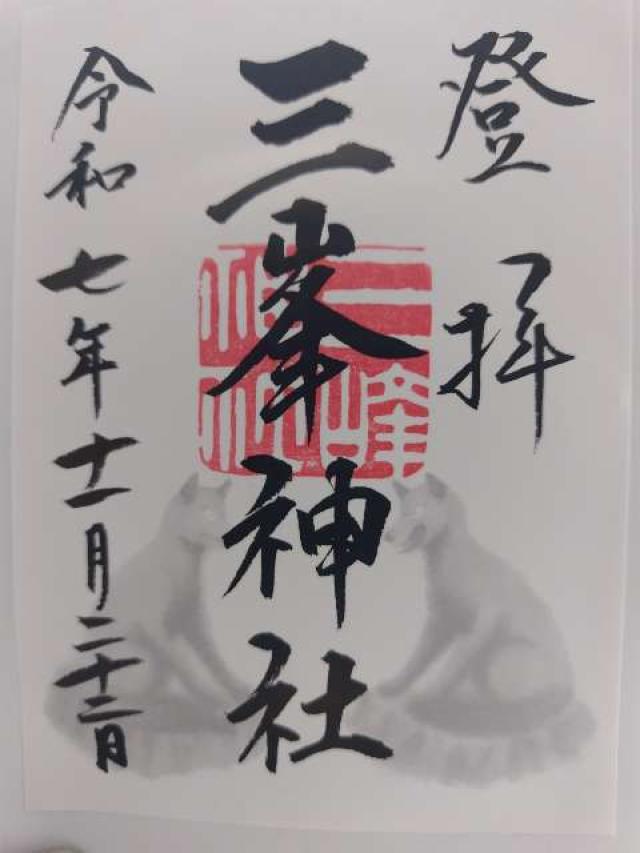 登拝
三峯神社
三峰神社
令和七年十一月二十二日